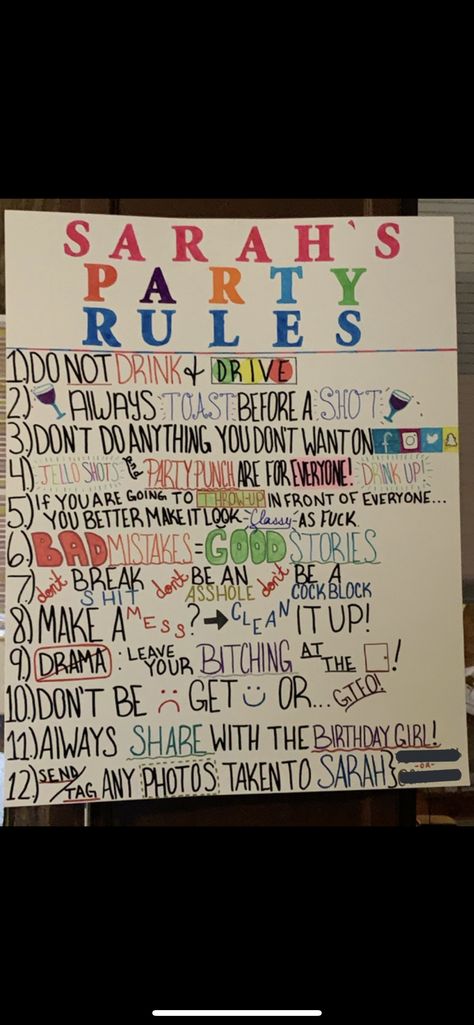 SARAH'S
PARTY
RULES
1) DO NOT DRINK & DRIVE
2) AlWAYS TOAST BEFORE A SHOT
3) DON'T DO ANYTHING YOU DON'T WANT ON
4) JELLO SHOTS and PARTY PUNCH ARE FOR EVERYONE! DRINK UP!
5) IF YOU ARE GOING TO THROW-UP IN FRONT OF EVERYONE...
YOU BETTER MAKE IT LOOK -Classy- AS FUCK.
6) BAD MISTAKES = GOOD STORIES
7) don't BREAK SHIT don't BE AN ASSHOLE don't BE A COCK BLOCK
8) MAKE A MESS? → CLEAN IT UP!
9) DRAMA : LEAVE YOUR BITCHING AT THE !
10) DON'T BE GET OR... GTFO!
11) AlWAYS SHARE WITH THE BIRTHDAY GIRL!
12) SEND/TAG ANY PHOTOS TAKEN TO SARAH}
-OR-